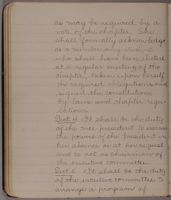 as may be required by a
vote of the chapter. She
shall formally acknowledge
as a member any student
who shall have been elected
at a regular meeting of the
chapter, taken upon herself
the required obligations and
signed the constitution
by-laws and chapter regu-
lations.
Sect. 4. It shall be the duty
of the vice president to assume
the powers of the president in
her absence or at her request
and to act as chairman of
the executive committee.
Sect. 5. It shall be the duty
of the executive committee to
arrange a program of